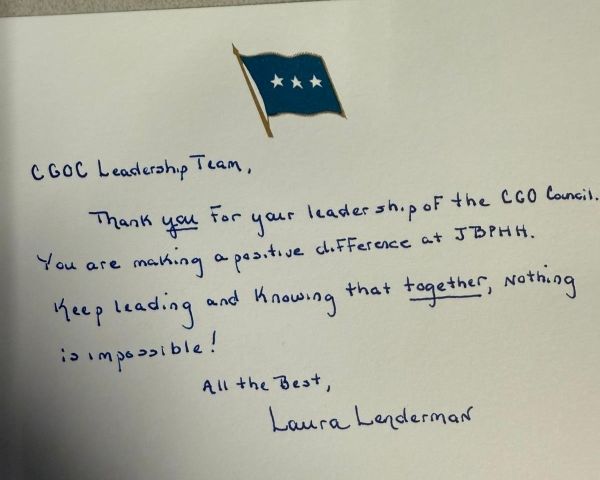 CGOC Leadership Team,
Thank you for your leadership of the CGO Council.
You are making a positive difference at JBPHH.
Keep leading and knowing that together, nothing
is impossible!
All the Best,
Laura Lenderman